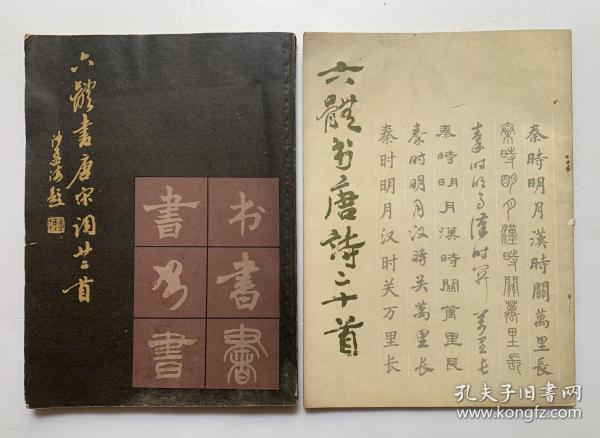 六體書唐宋词廿二首
沙孟海题
書书
書書
書書
六體书唐詩二十首
秦時明月漢時關萬里長
秦時明月漢時關萬里長
秦时明月漢时关万里长
秦時明月漢時關萬里長
秦时明月汉时关萬里长
秦时明月汉时关万里长
孔夫子旧书网
www.kongfz.com